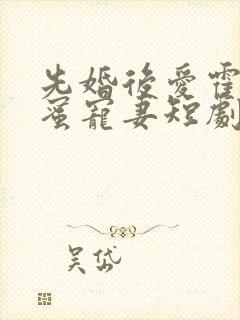 先婚後愛霍
蜜寵妻短劇
吴岱